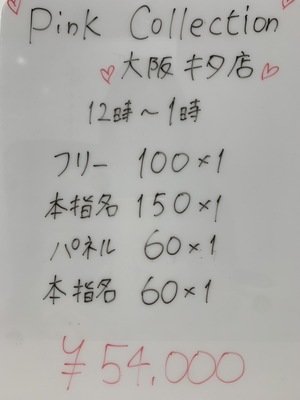 Pink Collection
大阪キタ店
12時～1時
フリー 100×1
本指名 150×1
パネル 60×1
本指名 60×1
¥54,000